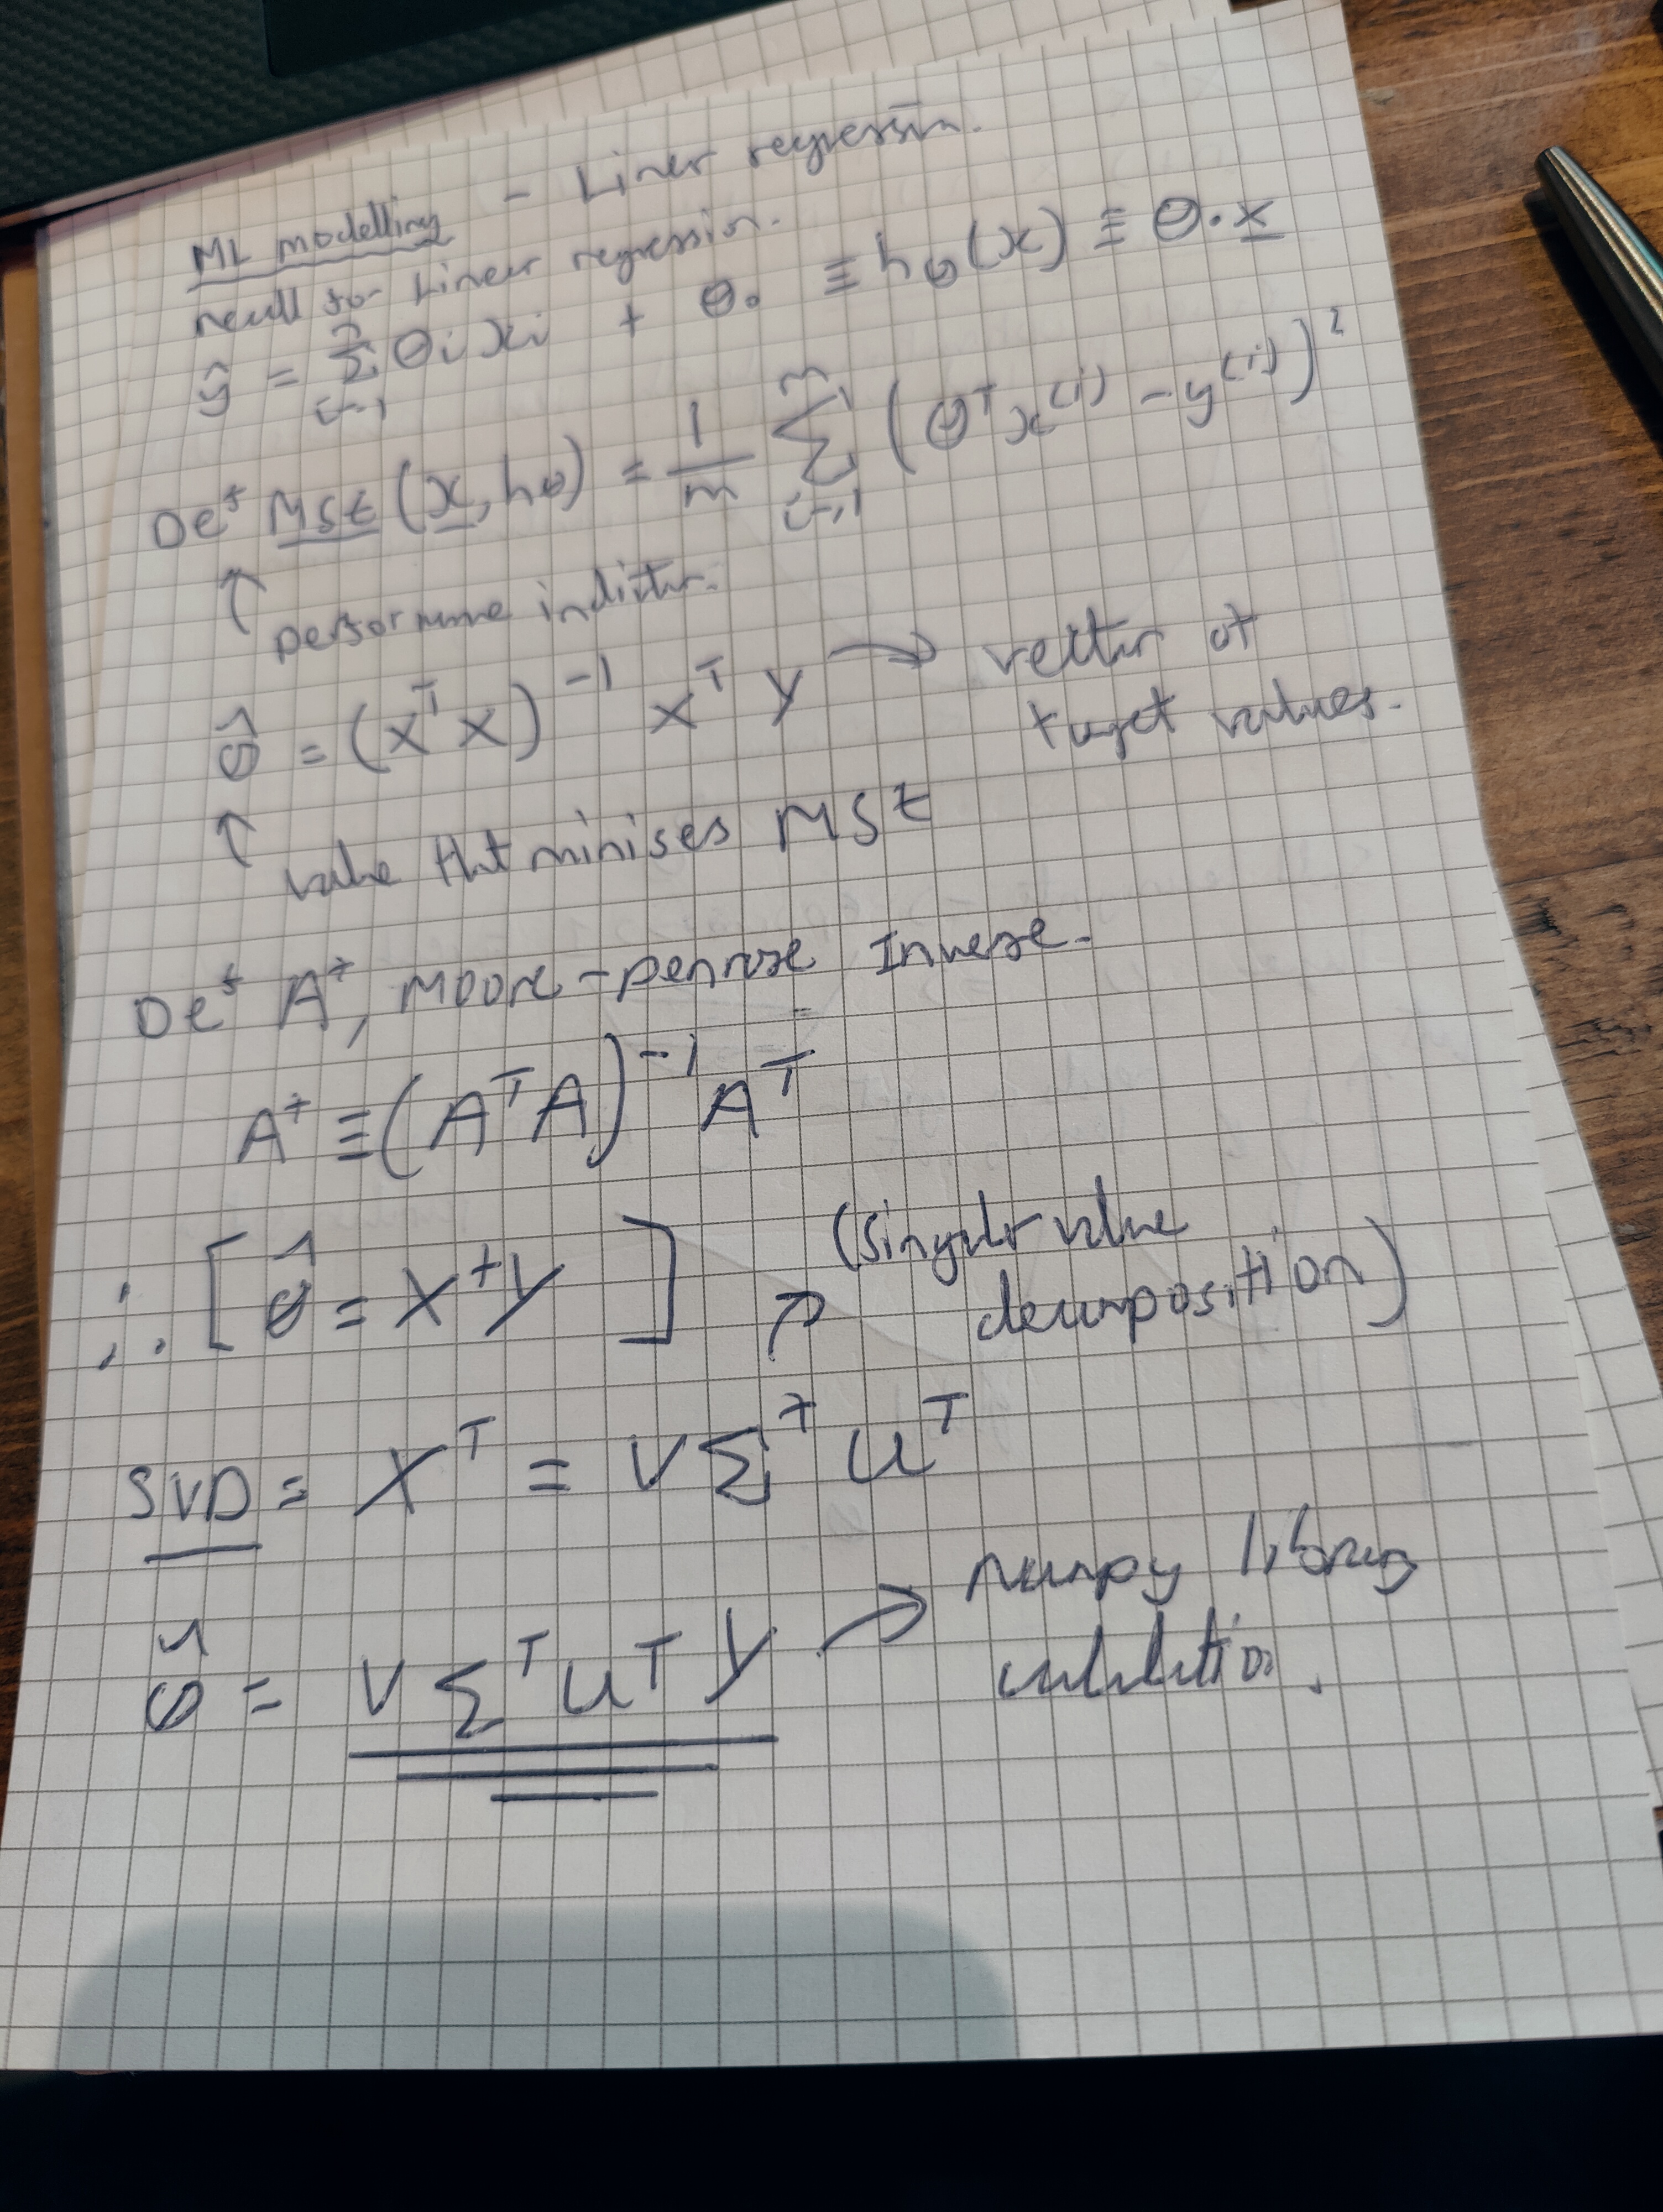 ML modelling - Liner regression.
recall for Linear regression.
ŷ = Σⁿᵢ₌₁ θᵢ xᵢ + θ₀ ≡ h_θ(x) ≡ θ·x
Def MSE (x, h_θ) = 1/m Σᵐᵢ₌₁ (θᵀx⁽ⁱ⁾ - y⁽ⁱ⁾)²
↑ performance indicator.
θ̂ = (XᵀX)⁻¹ Xᵀ y → vector of
target values.
↑ value that minises MSE
Def A⁺, Moore-penrose Inverse.
A⁺ ≡ (AᵀA)⁻¹Aᵀ
∴ [θ̂ = X⁺y] ↗ (Singular value
decomposition)
SVD = X⁺ = VΣ⁺Uᵀ
θ̂ = VΣᵀUᵀy → Numpy library
calculation.